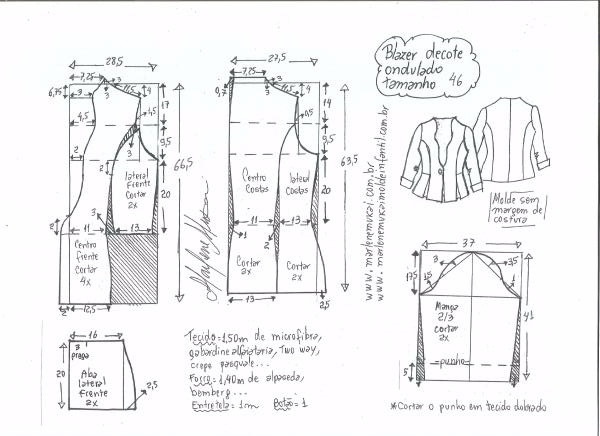 28,5
7,25
6,75
3
9
3
11,5
4
4,5
17
4,5
3
9,5
2
2
lateral
Frente
Cortar
2x
20
66,5
3
11
13
2
Centro
frente
Cortar
4x
2
12,5
27,5
7,25
0,7
3
11,5
4
14
0,5
9,5
Centro
Costas
lateral
Costas
20
63,5
11
13
1
2
Cortar
2x
Cortar
2x
13
2,5
Blazer decote
ondulado
tamanho 46
www.marlenemukai.com.br
www.marlenemukaimoldeinfantil.com.br
Molde sem
margem de
costura
37
17,5
3
3,5
1,5
1
Manga
2/3
cortar
2x
41
=punho=
5
*Cortar o punho em tecido dobrado
16
3
prega
20
Aba
lateral
frente
2x
2,5
Tecido=1,50m de microfibra,
gabardine alfaiataria, Two way,
crepe pasquale...
Forro=1,40m de alpaseda,
bemberg...
Entretela=1m Botão=1